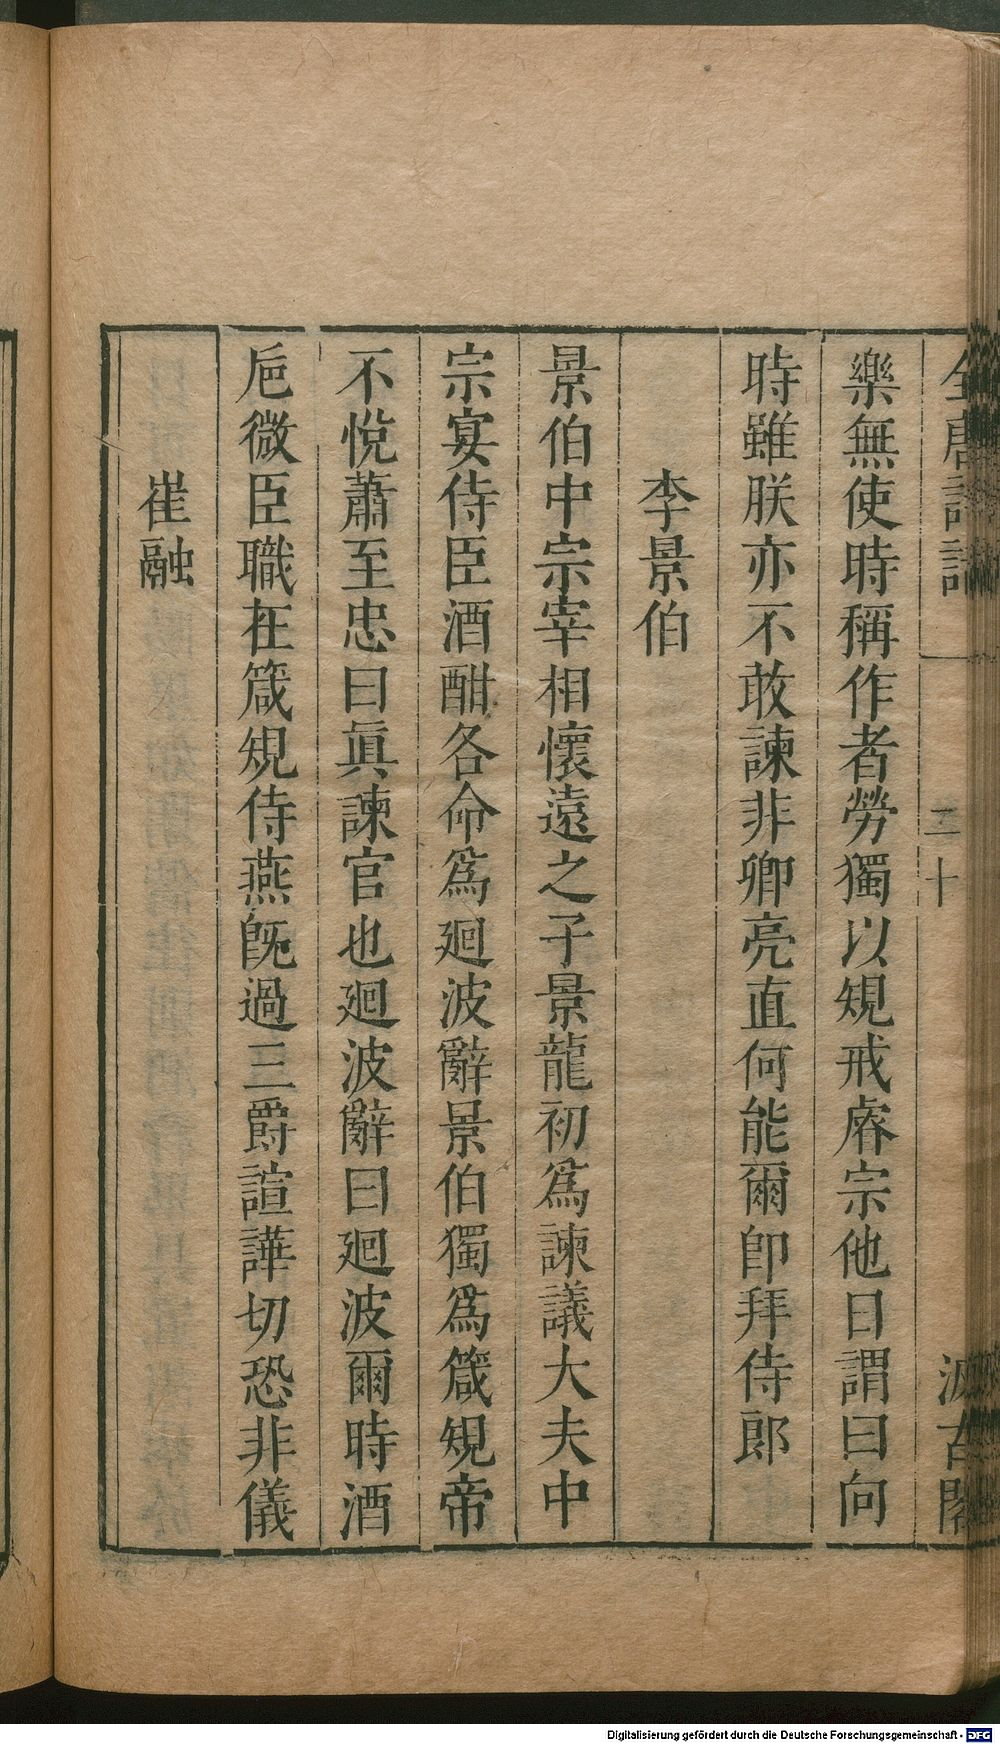 樂無使時稱作者勞獨以規戒睿宗他日謂曰向
時雖朕亦不敢諫非卿亮直何能爾卽拜侍郎
李景伯
景伯中宗宰相懷遠之子景龍初爲諫議大夫中
宗宴侍臣酒酣各命爲廻波辭景伯獨爲箴規帝
不悅蕭至忠曰眞諫官也廻波辭曰廻波爾時酒
巵微臣職在箴規侍燕旣過三爵諠譁切恐非儀
崔融
二十
Digitalisierung gefördert durch die Deutsche Forschungsgemeinschaft - DFG